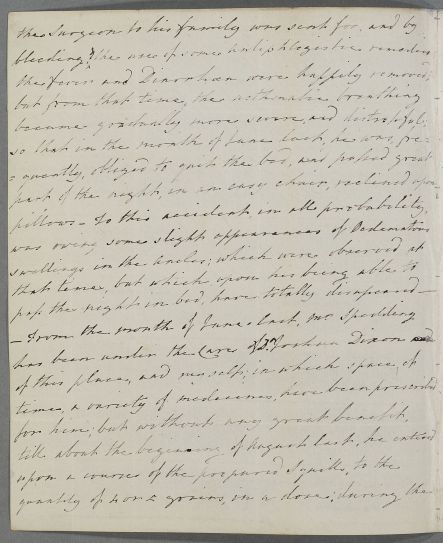 the Surgeon to his family was sent for, and by
bleeding & the use of some antiphlogistic remedies
the fever and Diarrhœa were happily removed;
but from that time, the asthmatic breathing
became gradually more severe, and distressful;
so that in the month of June last, he was, fre-
=quently, obliged to quit the bed, and passed great
part of the night, in an easy chair, reclined upon
pillows – To this accident, in all probability,
was owing some slight appearances of Oedematous
swellings in the ancles; which were observed at
that time, but which, upon his being able to
pass the night in bed, have totally disappeared –
– From the month of June last, Mr Spedding
has been under the Care of Dr Joshua Dixon
of this place, and myself; in which space, of
time, a variety of medicines, have been prescribed
for him; but without any great benefit,
till about the beginning of August last, he entered
upon a course of the prepared Squills, to the
quantity of 4 or 5 grains, in a dose; during the